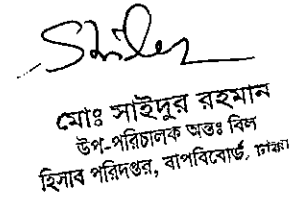 মোঃ সাইদুর রহমান
উপ-পরিচালক অতঃ বিল
হিসাব পরিদপ্তর, বাপবিবোর্ড, ঢাকা।